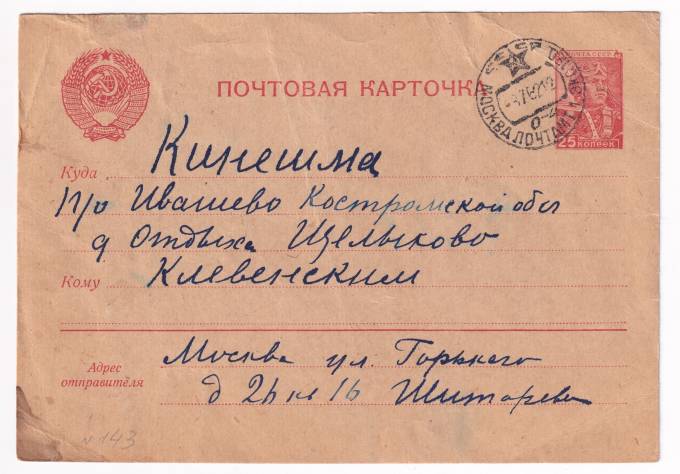 ПОЧТОВАЯ КАРТОЧКА
ПОЧТА СССР
25 КОПЕЕК
МОСКВА ПОЧТАМТ
Куда Кинешма
п/о Ивашево Костромской обл
д Отдыха Щелыково
Кому Клевенским
Адрес отправителя
Москва ул. Горького
д 26 кв 16
N 143